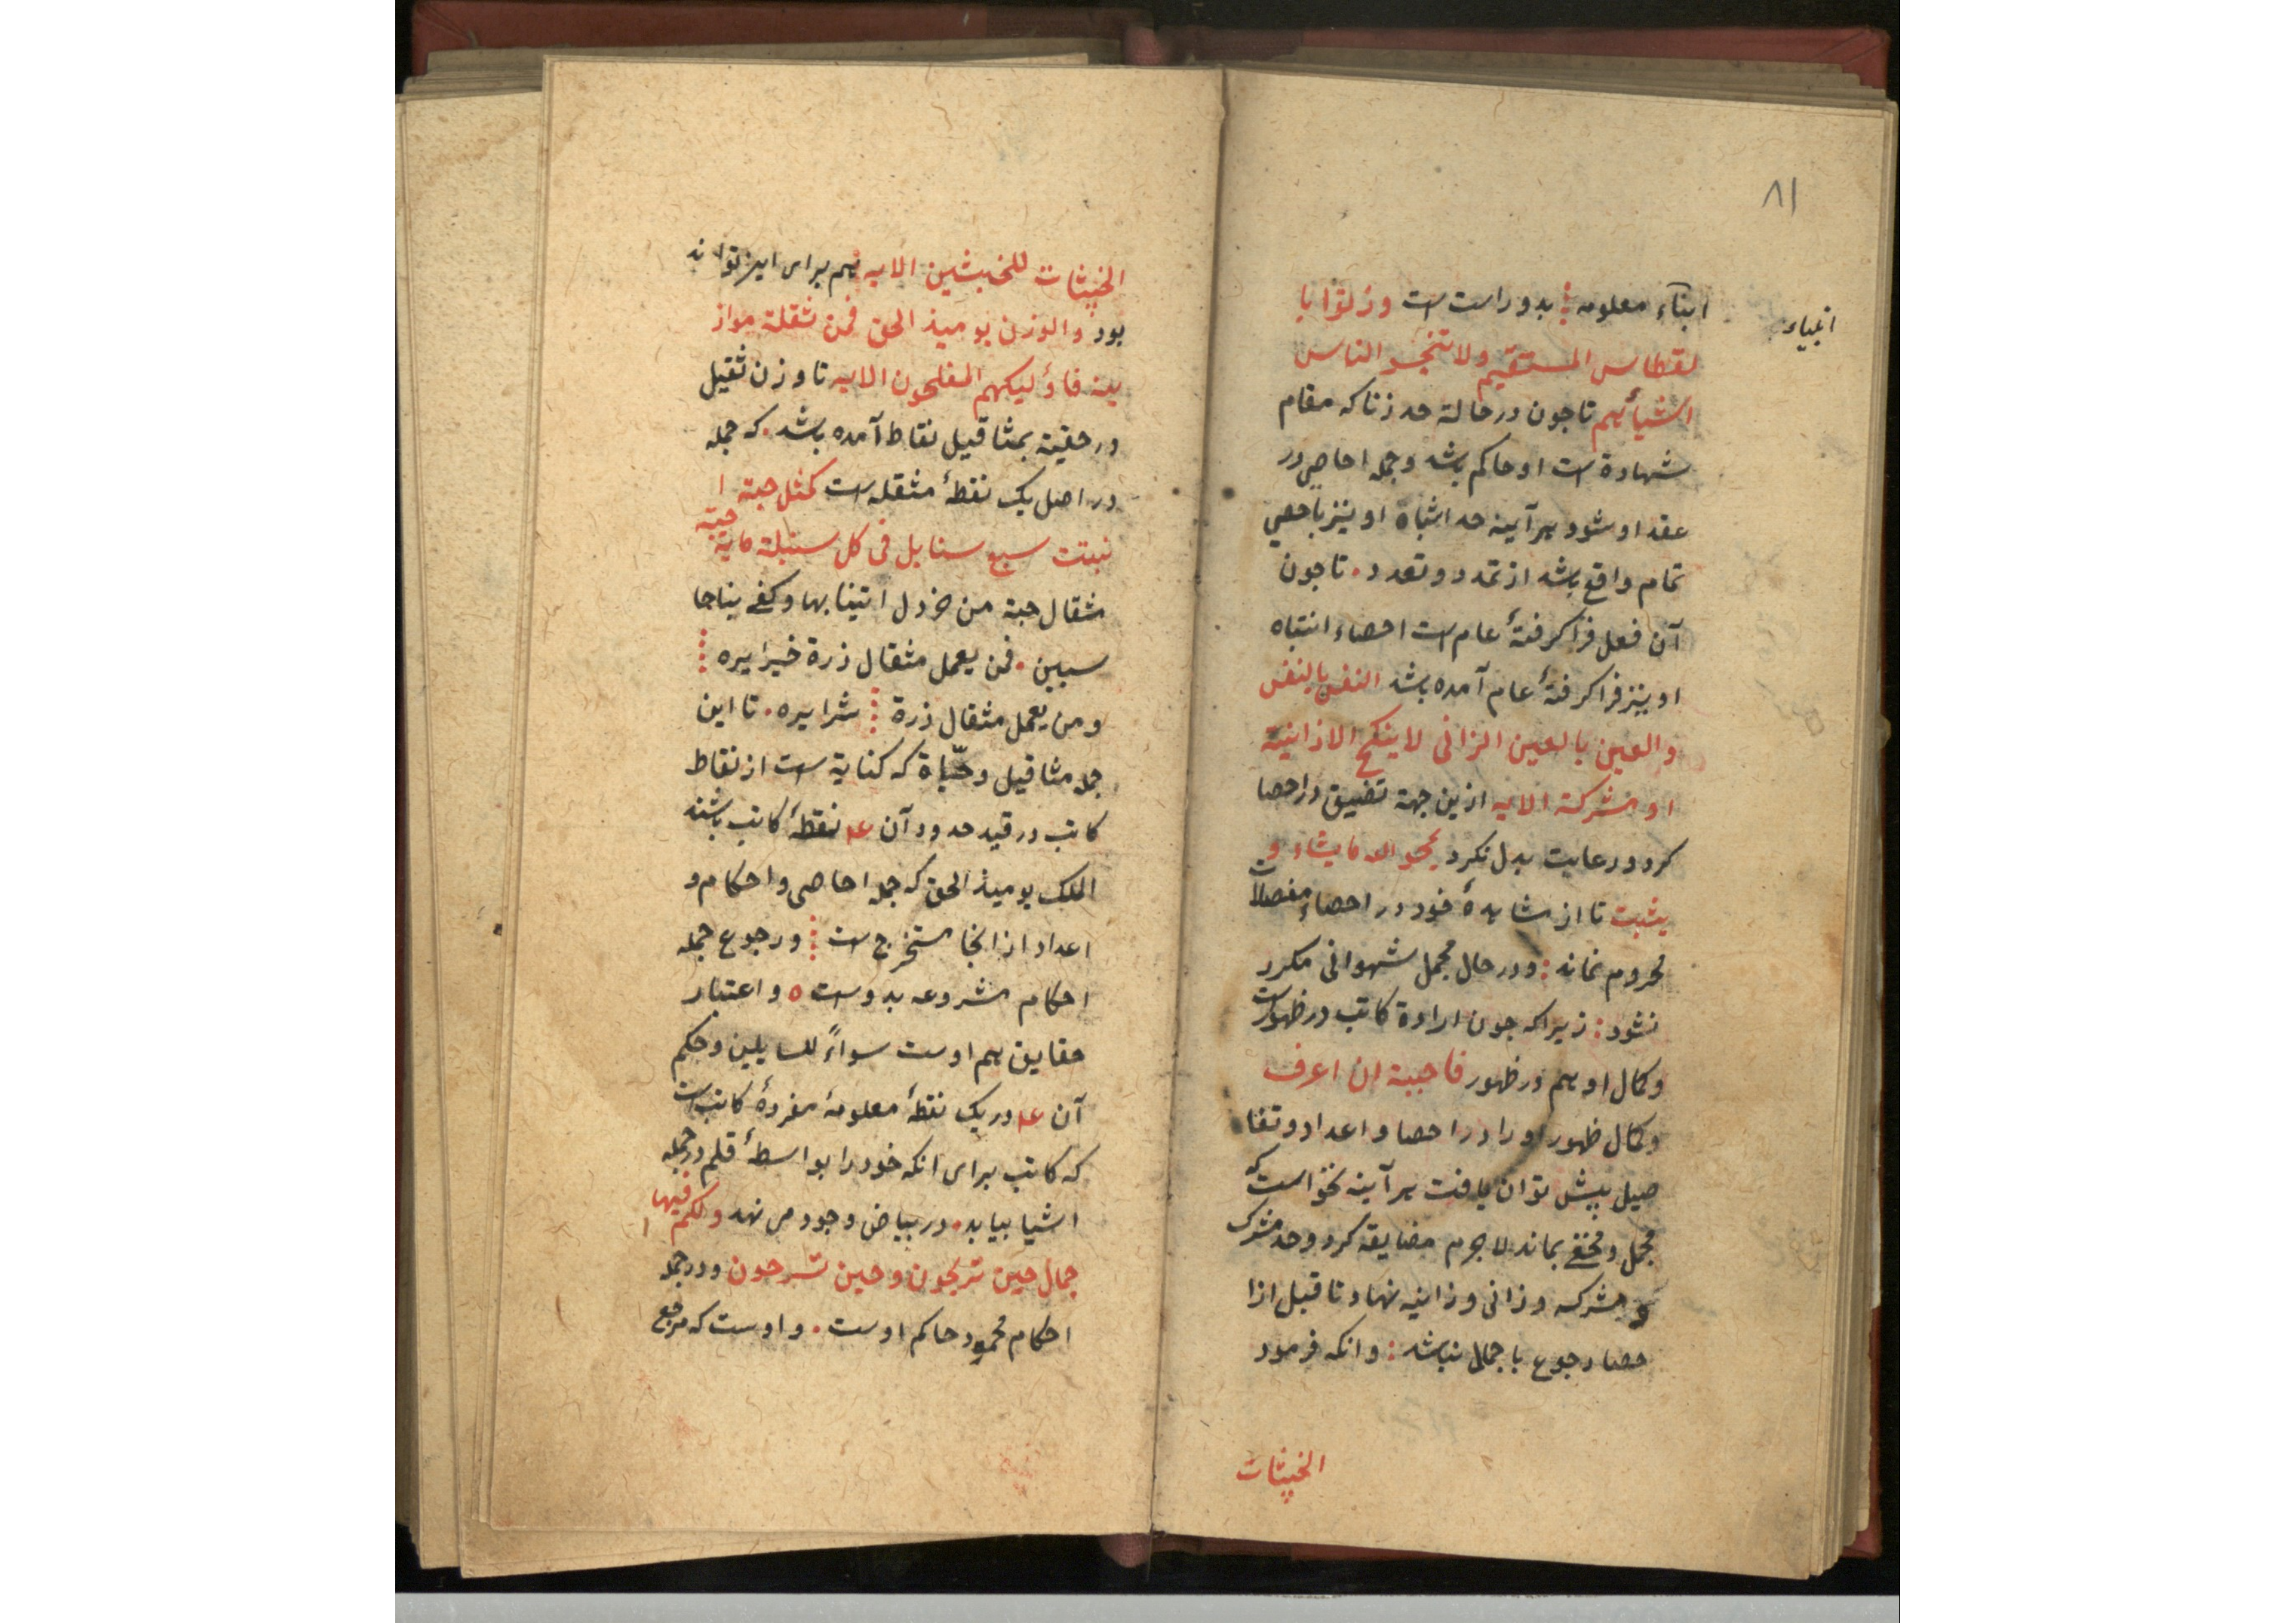 ۸۱
انبیاء
ابناء معلومه بدو راست است وزنوا با
لقطاس المستقیم ولا تبخسو الناس
اشیائهم تا چون در حالة حد زنا که مقام
شهادة است او حاکم باشد و جمله احاصی در
عقد او شود هر آینه حد اثباة او نیز باحصی
تمام واقع باشد از تمدد و تعدد • تا چون
آن فعل فرا گرفتهٔ عام است احصاء انتباه
او نیز فرا گرفتهٔ عام آمده باشد النفس بالنفس
والعین بالعین الزانی لا ینکح الا زانیة
او مشرکة الایه ازین جهة تضییق در احصا
کرد و رعایت بدل نکرد یمحو الله ما یشاء و
یثبت تا از مشاهدهٔ خود در احصاء مفصلات
محروم نماند : و در حال مجمل شهوانی مکرر
نشود : زیرا که چون ارادة کاتب در ظهورست
و کمال او هم در ظهور فاحببة ان اعرف
و کمال ظهور او را در احصا و اعداد و تفا
صیل بیش توان یافت هر آینه نخواست که
مجمل و مخفی بماند لا جرم مضایقه کرد و حد مشرک
و مشرکه و زانی و زانیه نهاد تا قبل از ا
حصا رجوع با جمال نباشد : و انکه فرمود
الخبیثات
الخبیثات للخبیثین الایه هم برای این تواند
بود والوزن یومیذ الحق فمن ثقلة مواز
ینه فاؤلیکهم المفلحون الایه تا وزن ثقیل
در حقیقة بمثاقیل نقاط آمده باشد • که جمله
در اصل یک نقطهٔ مثقله است کمثل حبة ا
نبتت سبع سنابل فی کل سنبلة مایة حبة
مثقال حبة من خردل اتینا بها وکفی بناحا
سبین • فمن یعمل مثقال ذرة خیرا یره
ومن یعمل مثقال ذرة شرا یره • تا این
جمله مثاقیل و حبّاة که کنایة است از نقاط
کاتب در قید حدود آن عد نقطهٔ کاتب باشند
الملک یومیذ الحق که جمله احاصی و احکام و
اعداد از انجا مستخرج است و رجوع جمله
احکام مشروعه بدوست ٥ و اعتبار
حقایق هم اوست سواءً للسایلین و حکم
آن عد در یک نقطهٔ معلومهٔ مفردهٔ کاتب است
که کاتب برای انکه خود را بواسطهٔ قلم در جمله
اشیا بیابد • در بیاض وجود می نهد ولکم فیها
جمال حین تریحون وحین تسرحون و در جمله
احکام محمود حاکم اوست • و اوست که مرجع